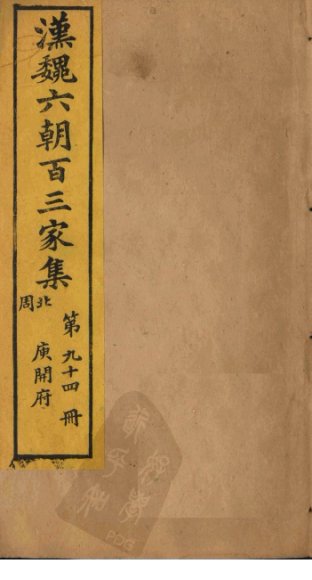 漢魏六朝百三家集
北周
第九十四冊
庾開府